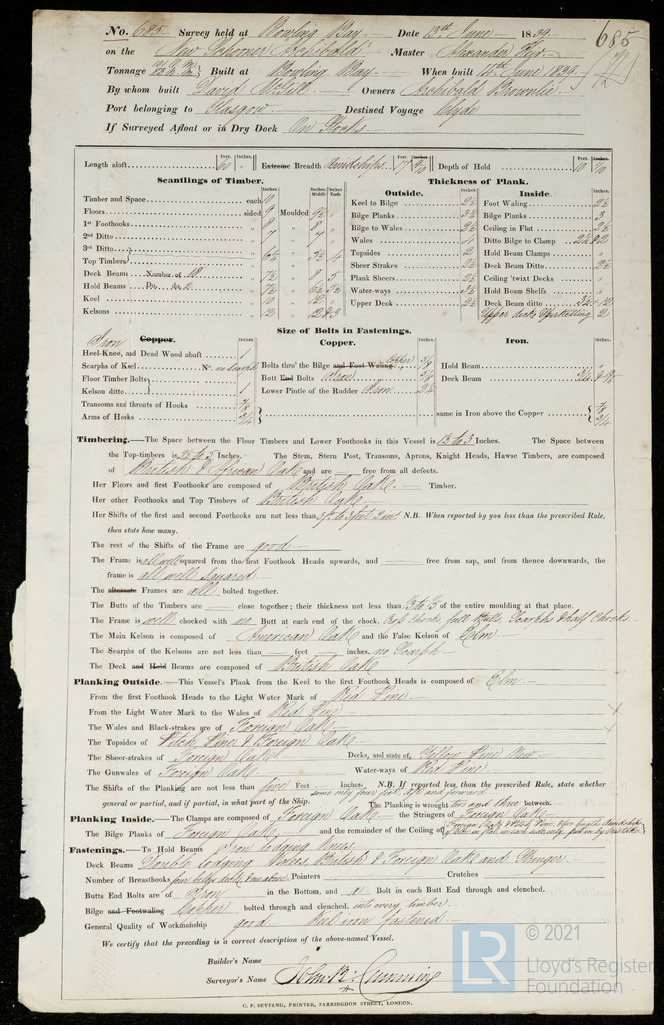 No. 685 Survey held at Bowling Bay. Date 13th June 1839. 685
on the New Schooner "Archibald" Master Alexander
Tonnage Built at Bowling Bay. When built 4th June 1839.
By whom built David McGill Owners Archibald Brownlie
Port belonging to Glasgow Destined Voyage Clyde
If Surveyed Afloat or in Dry Dock On Stocks
Length aloft Feet. 60 Inches. Extreme Breadth Amidships Feet. 17 Inches. Depth of Hold Feet. 10 Inches.
Scantlings of Timber.
Timber and Space each 10
Floors sided 9 Moulded 9½
1st Foothooks 8 " 8
2nd Ditto 7 " 7
3rd Ditto
Top Timbers 6½ 5½ 4
Deck Beams Number of 18. 7½ 8 5
Hold Beams Do. No. 2. 7½ 6½ 5½
Keel 10 12
Kelsons 12
Thickness of Plank.
Outside.
Keel to Bilge 2½
Bilge Planks 3½
Bilge to Wales 2½
Wales 4
Topsides 2
Sheer Strakes 2½
Plank Sheers 2½
Water-ways 3½
Upper Deck 2½
Inside.
Foot Waling 2½
Bilge Planks 3
Ceiling in Flat 2½
Ditto Bilge to Clamp 2½ & 2
Hold Beam Clamps "
Deck Beam Ditto 2½
Ceiling 'twixt Decks "
Hold Beam Shelfs "
Deck Beam ditto 3½ - 12
Upper decks Spirketting 2
Size of Bolts in Fastenings.
Iron Copper.
Heel-Knee, and Dead Wood abaft 1
Scarphs of Keel No. no Scarph
Floor Timber Bolts
Kelson ditto 1
Transoms and throats of Hooks 7/8
Arms of Hooks 3/4
Copper.
Bolts thro' the Bilge and Foot Waling Copper 5/8
Butt End Bolts Iron 5/8
Lower Pintle of the Rudder Iron 2¼
Iron.
Hold Beam "
Deck Beam
same in Iron above the Copper 7/8 3/4
Timbering.—The Space between the Floor Timbers and Lower Foothooks in this Vessel is 1½ to 3 Inches. The Space between
the Top-timbers is 3½ to 5 Inches. The Stem, Stern Post, Transoms, Aprons, Knight Heads, Hawse Timbers, are composed
of British & African Oak and are free from all defects.
Her Floors and first Foothooks are composed of British Oak. Timber.
Her other Foothooks and Top Timbers of British Oak.
Her Shifts of the first and second Foothooks are not less than 3 ft. to 3 feet 2 in. N.B. When reported by you less than the prescribed Rule,
then state how many.
The rest of the Shifts of the Frame are good
The Frame is all well squared from the first Foothook Heads upwards, and free from sap, and from thence downwards, the
frame is all well squared
The alternate Frames are all bolted together.
The Butts of the Timbers are close together; their thickness not less than ⅓ to ⅓ of the entire moulding at that place.
The Frame is well chocked with no Butt at each end of the chock. full Butts, Scarphs & half Chocks
The Main Kelson is composed of American Oak and the False Kelson of Elm
The Scarphs of the Kelsons are not less than feet inches. no Scarph
The Deck and Hold Beams are composed of British Oak
Planking Outside.—This Vessel's Plank from the Keel to the first Foothook Heads is composed of Elm
From the first Foothook Heads to the Light Water Mark of Red Pine
From the Light Water Mark to the Wales of Red Pine
The Wales and Black-strakes are of Foreign Oak
The Topsides of Pitch Pine & Foreign Oak
The Sheer-strakes of Foreign Oak Decks, and state of, Yellow Pine New
The Gunwales of Foreign Oak Water-ways of Red Pine.
The Shifts of the Planking are not less than five Feet Inches. N.B. If reported less than the prescribed Rule, state whether
general or partial, and if partial, in what part of the Ship. some only four feet aft and forward
The Planking is wrought two and three between.
Planking Inside.—The Clamps are composed of Foreign Oak the Stringers of Foreign Oak
The Bilge Planks of Foreign Oak and the remainder of the Ceiling of Foreign Oak & Pitch Pine
Fastenings.—To Hold Beams Iron lodging Knees
Deck Beams Double lodging Knees British & Foreign Oak and Stringer.
Number of Breasthooks four below deck, & one above Pointers Crutches
Butts End Bolts are of Iron in the Bottom, and a Bolt in each Butt End through and clenched.
Bilge and Footwaling Copper bolted through and clenched. into every timber.
General Quality of Workmanship good. Keel iron fastened.
We certify that the preceding is a correct description of the above-named Vessel.
Builder's Name
Surveyor's Name John B. Cumming
C. F. SEYFANG, PRINTER, FARRINGDON STREET, LONDON.
LR © 2021
Lloyd's Register
Foundation